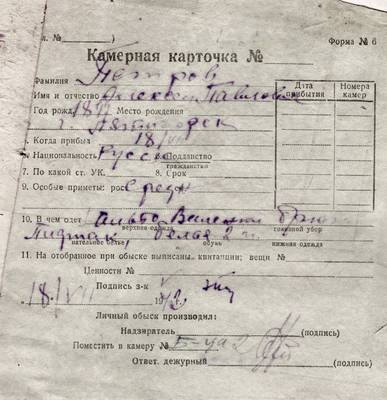 л. №            )    Форма № 6
Камерная карточка №
Фамилия Петров
Имя и отчество Алексей Павлович
Дата прибытия | Номера камер
Год рожд. Место рождения
г. Пятигорск
6. Когда прибыл 18/VII
7. Национальность Русск. 8. Подданство
гражданство
7. По какой ст. УК. 8. Срок
9. Особые приметы: рост Средн
10. В чем одет Пальто Валенки Брюки
верхняя одежда головной убор
Пиджак, белья 2 п.
нательное белье, обувь нижняя одежда
11. На отобранное при обыске выписаны квитанции; вещи №
Ценности №
Подпись з-к
18/VII
Личный обыск производил:
Надзиратель (подпись)
Поместить в камеру №
Ответ. дежурный (подпись)